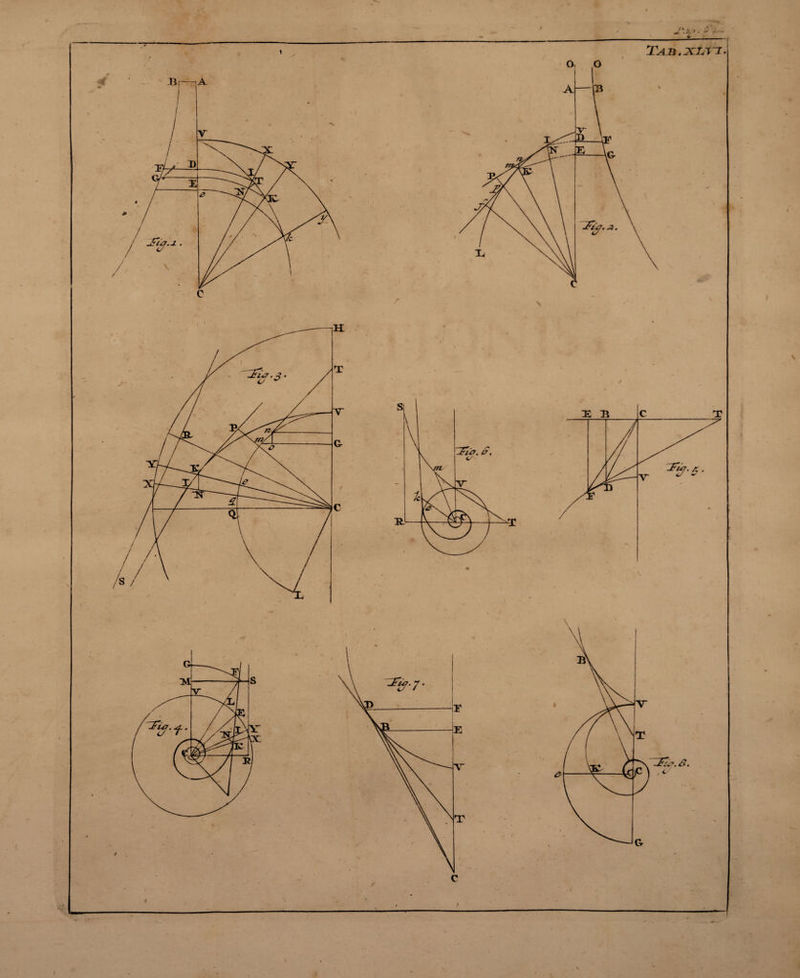 TAB. XLVI.
B A
V
X
Y
F D
I
T
G
E
e
N
K
y
k
Fig. 1.
C
O O
A B
V
I D F
N E G
m n
K
P
Fig. 2.
L
C
H
Fig. 3.
T
V
R P n
m G
o
Y K
X I e
N
q
Q C
S
L
S
Fig. 6.
m
V
k
R C T
E B C T
Fig. 5.
V
F D
G
F
M S
V
L
E
Fig. 4.
N I Y
X
K
C
R
Fig. 7.
D F
B E
V
T
C
B
V
T
K C
Fig. 8.
e
G